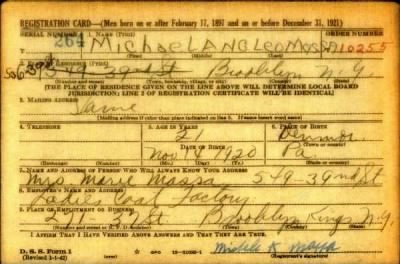 REGISTRATION CARD—(Men born on or after February 17, 1897 and on or before December 31, 1921)
SERIAL NUMBER 1. NAME (Print) ORDER NUMBER
264 Michael ANGLEO Massa 10255
(First) (Middle) (Last)
2. PLACE OF RESIDENCE (Print)
549 - 39th St Brooklyn N.Y.
(Number and street) (Town, township, village, or city) (County) (State)
[THE PLACE OF RESIDENCE GIVEN ON THE LINE ABOVE WILL DETERMINE LOCAL BOARD
JURISDICTION; LINE 2 OF REGISTRATION CERTIFICATE WILL BE IDENTICAL]
3. MAILING ADDRESS
Same
[Mailing address if other than place indicated on line 2. If same insert word same]
4. TELEPHONE 5. AGE IN YEARS 6. PLACE OF BIRTH
21
DATE OF BIRTH (Town or county)
Nov 19 1920 Pa
(Exchange) (Number) (Mo.) (Day) (Yr.) (State or country)
7. NAME AND ADDRESS OF PERSON WHO WILL ALWAYS KNOW YOUR ADDRESS
Mrs Marie Massa 549-39nd St
8. EMPLOYER'S NAME AND ADDRESS
Ladies Coat Factory
9. PLACE OF EMPLOYMENT OR BUSINESS
St Brooklyn Kings N.Y.
(Number and street or R. F. D. number) (Town) (County) (State)
I AFFIRM THAT I HAVE VERIFIED ABOVE ANSWERS AND THAT THEY ARE TRUE.
D. S. S. Form 1
(Revised 1-1-42) (Registrant's signature)